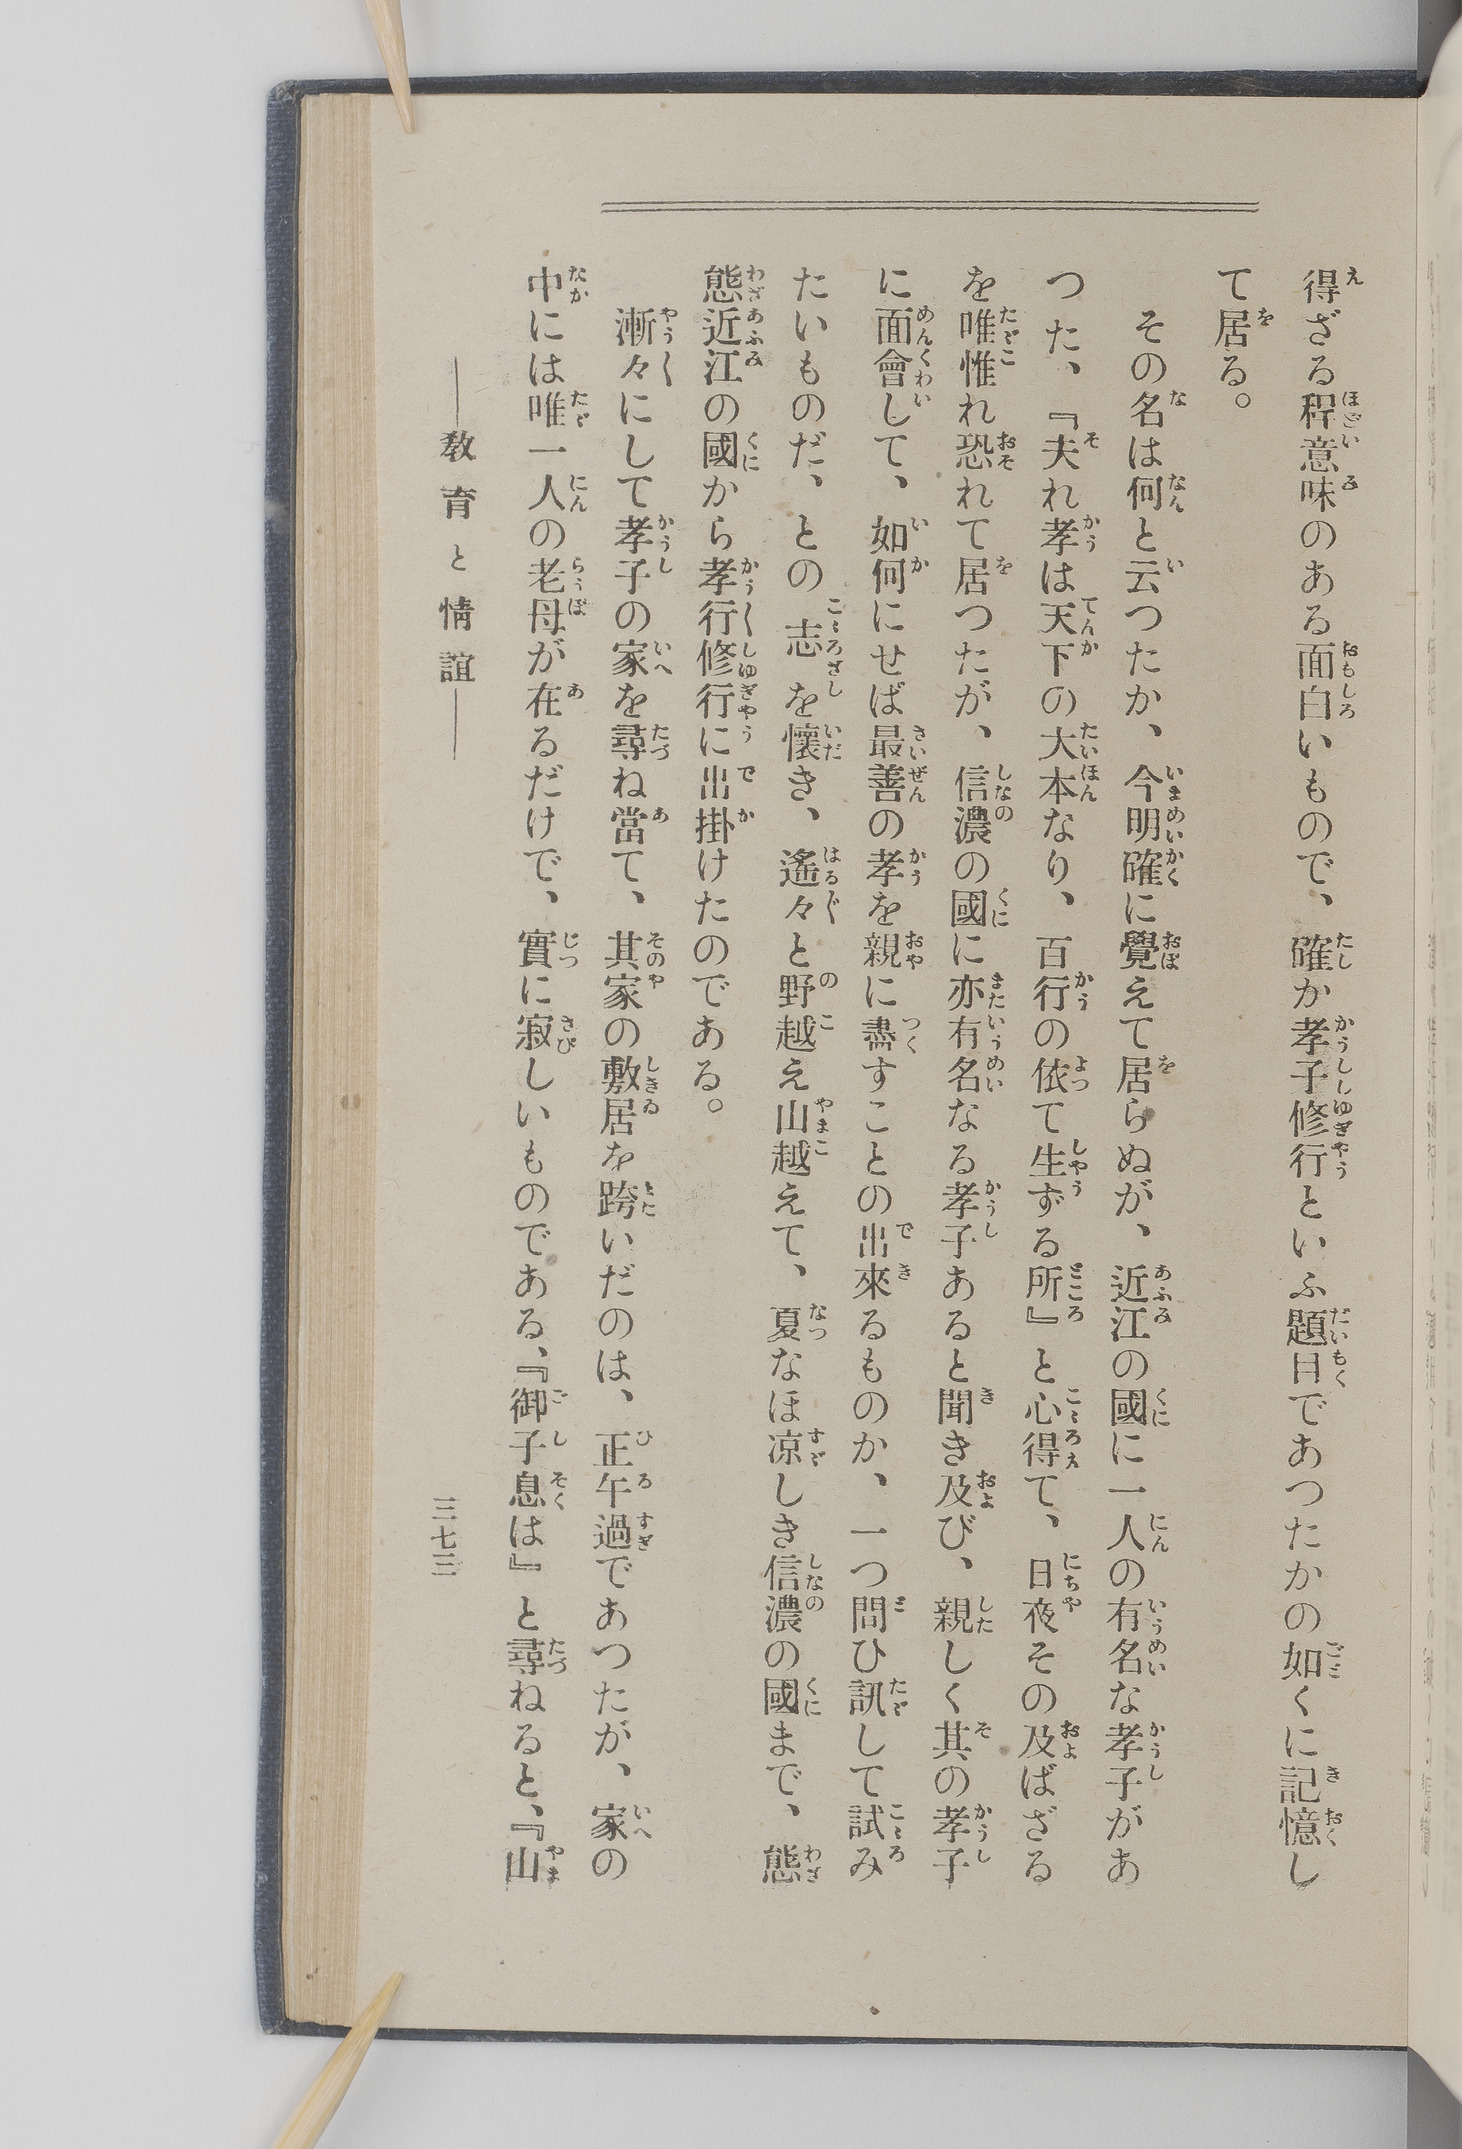 得ざる程意味のある面白いもので、確か孝子修行といふ題目であつたかの如くに記憶し
て居る。
その名は何と云つたか、今明確に覺えて居らぬが、近江の國に一人の有名な孝子があ
つた、『夫れ孝は天下の大本なり、百行の依て生ずる所』と心得て、日夜その及ばざる
を唯惟れ恐れて居つたが、信濃の國に亦有名なる孝子あると聞き及び、親しく其の孝子
に面會して、如何にせば最善の孝を親に盡すことの出來るものか、一つ問ひ訊して試み
たいものだ、との志を懷き、遙々と野越え山越えて、夏なほ凉しき信濃の國まで、態
態近江の國から孝行修行に出掛けたのである。
漸々にして孝子の家を尋ね當て、其家の敷居を跨いだのは、正午過であつたが、家の
中には唯一人の老母が在るだけで、實に寂しいものである、『御子息は』と尋ねると、『山
――教育と情誼――
三七三